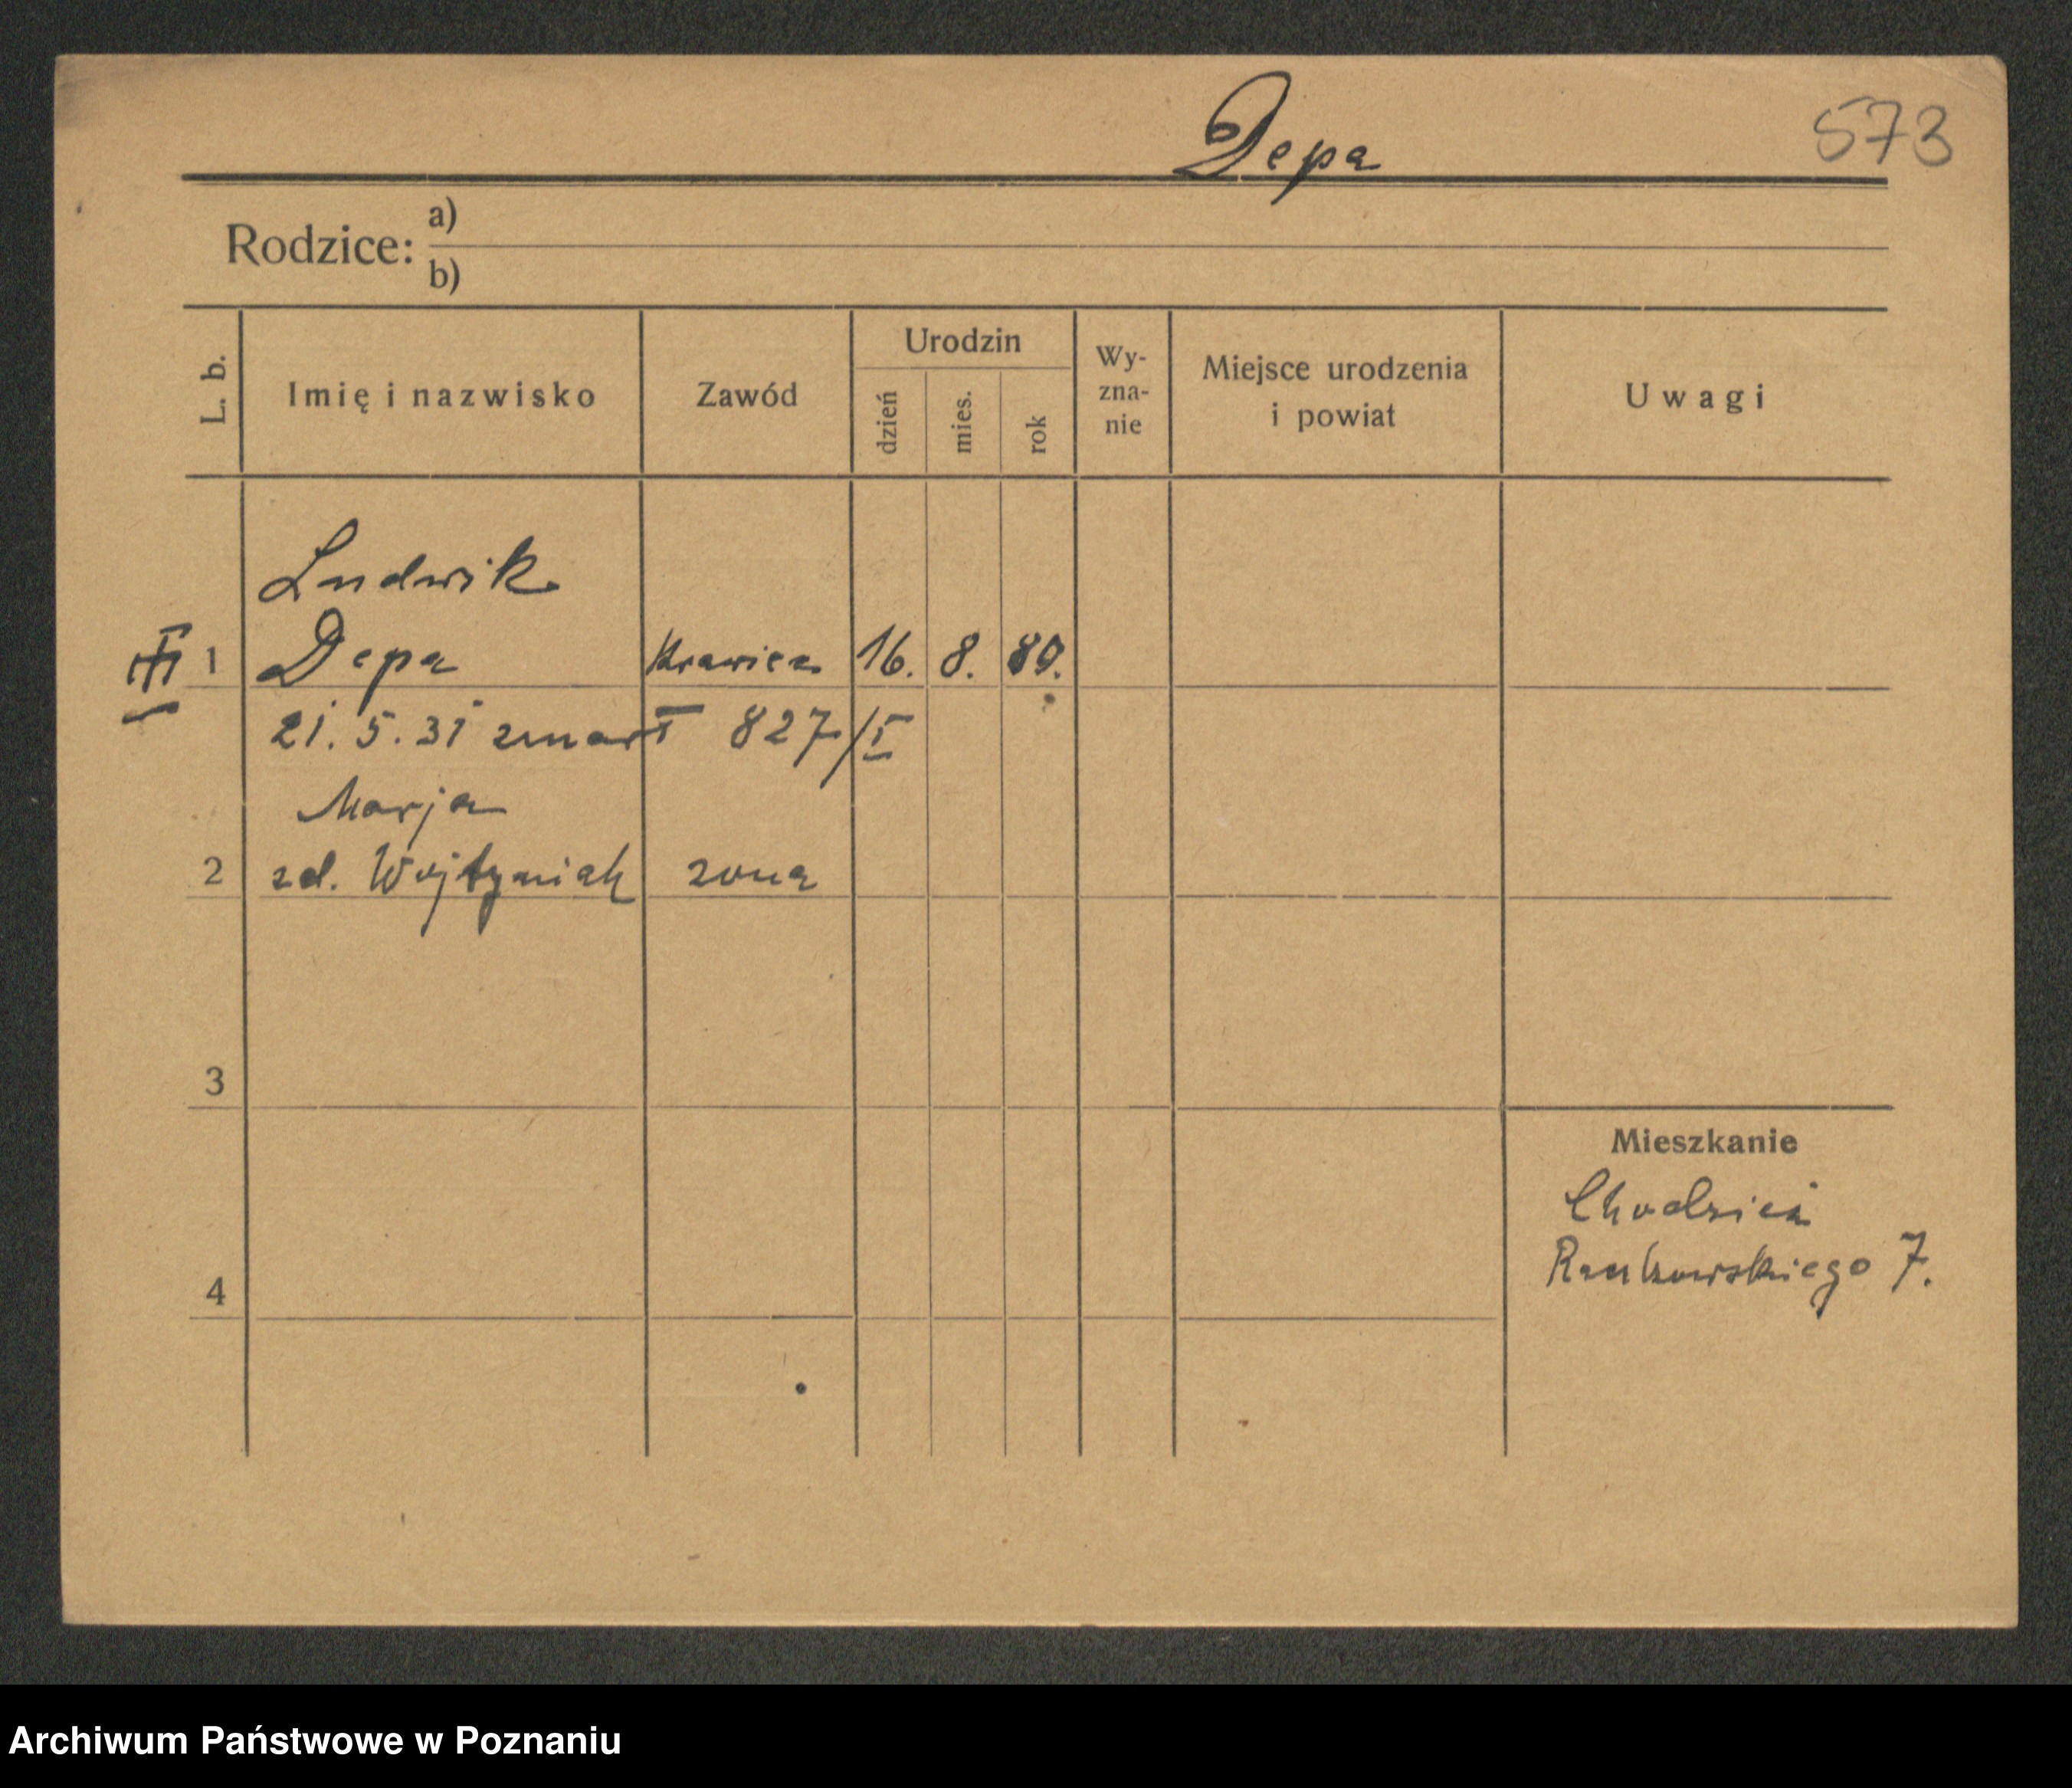 Depa
573
Rodzice: a)
b)
L. b.
Imię i nazwisko
Zawód
Urodzin
dzień
mies.
rok
Wy-
zna-
nie
Miejsce urodzenia
i powiat
Uwagi
Ludwik
III 1 Depa Krawiec 16. 8. 80.
21. 5. 31 zmarł 827/I
Marja
2 zd. Wojtyniak zona
3
Mieszkanie
Chodzież
7.
4
Archiwum Państwowe w Poznaniu